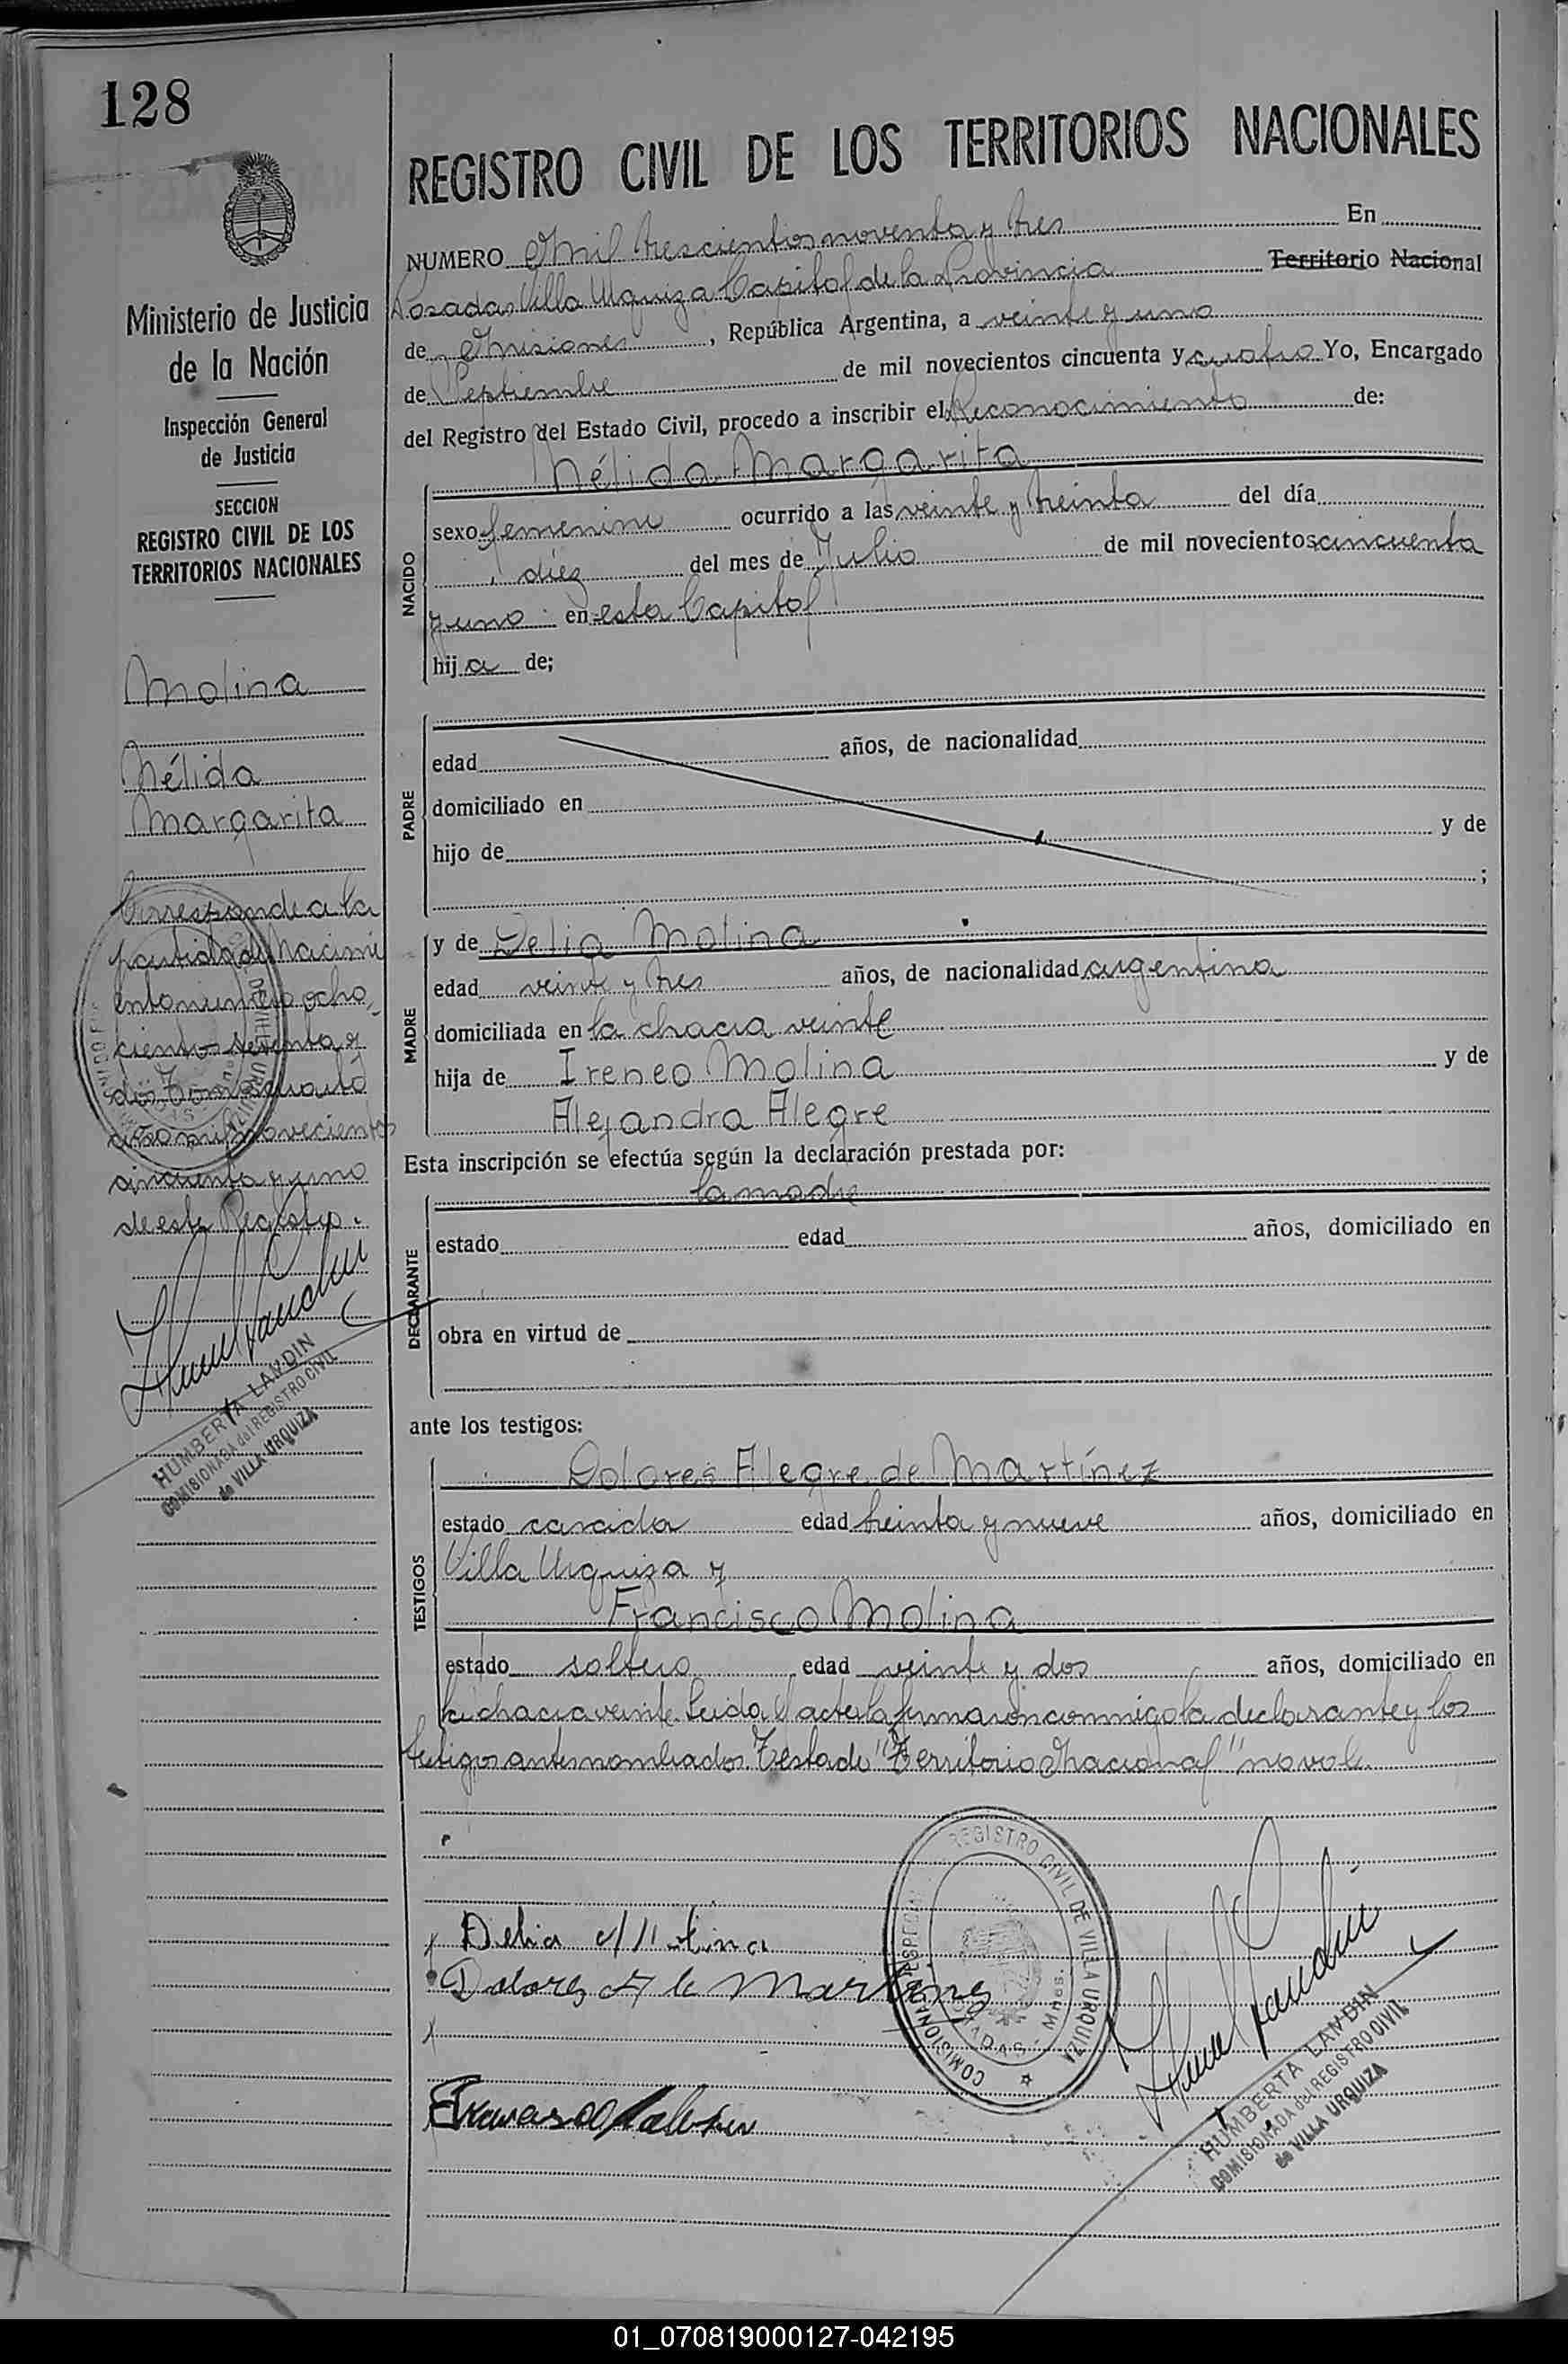 128
Ministerio de Justicia
de la Nación
Inspección General
de Justicia
SECCION
REGISTRO CIVIL DE LOS
TERRITORIOS NACIONALES
Molina
Nélida
Margarita
Corresponde a la
partida de Nacimi
ento número ocho
cientos setenta y
dos Tomo cuarto
año mil novecientos
cincuenta y uno
de este Registro.
HUMBERTA LANDIN
COMISIONADA del REGISTRO CIVIL
de VILLA URQUIZA
REGISTRO CIVIL DE LOS TERRITORIOS NACIONALES
NUMERO Mil trescientos noventa y tres En
Posadas Villa Urquiza Capital de la Provincia Territorio Nacional
de Misiones, República Argentina, a veinte y uno
de Septiembre de mil novecientos cincuenta y cuatro Yo, Encargado
del Registro del Estado Civil, procedo a inscribir el Reconocimiento de:
Nélida Margarita
NACIDO
sexo femenino ocurrido a las veinte y treinta del día
diez del mes de Julio de mil novecientos cincuenta
y uno en esta Capital
hija de;
PADRE
edad años, de nacionalidad
domiciliado en
hijo de y de
;
MADRE
y de Delia Molina
edad veinte y tres años, de nacionalidad argentina
domiciliada en la chacra veinte
hija de Ireneo Molina y de
Alejandra Alegre
Esta inscripción se efectúa según la declaración prestada por:
la madre
DECLARANTE
estado edad años, domiciliado en
obra en virtud de
ante los testigos:
TESTIGOS
Dolores Alegre de Martínez
estado casada edad treinta y nueve años, domiciliado en
Villa Urquiza y
Francisco Molina
estado soltero edad veinte y dos años, domiciliado en
la chacra veinte. Leida el acta la firmaron conmigo la declarante y los
testigos antes nombrados. Testado "Territorio Nacional" no vale.
Delia Molina
Dolores A de Martinez
REGISTRO CIVIL DE VILLA URQUIZA
COMISIONADA ESPECIAL
POSADAS - Mnes.
HUMBERTA LANDIN
COMISIONADA del REGISTRO CIVIL
de VILLA URQUIZA
01_070819000127-042195